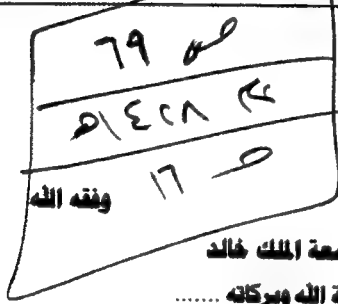 ص ٦٩
١٤٢٨هـ
ص ١٦
وفقه الله
معة الملك خالد
ة الله وبركاته ......